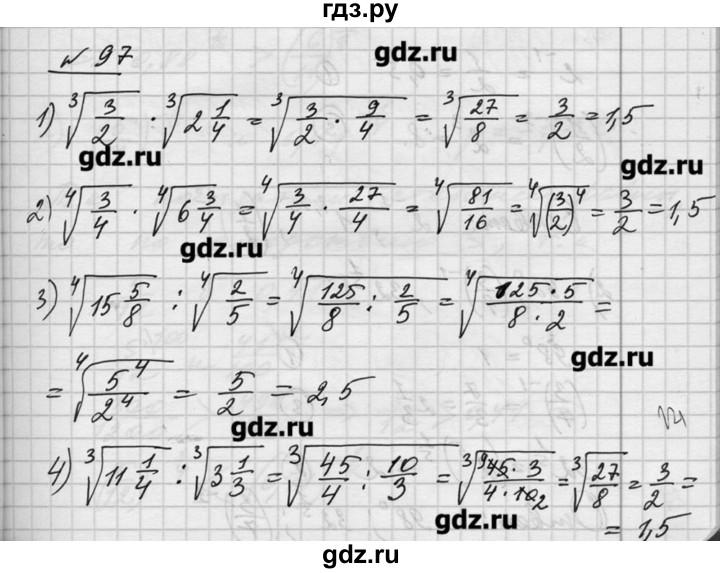 гдз.ру
№ 97
gdz.ru
1) ∛(3/2) · ∛(2 1/4) = ∛(3/2 · 9/4) = ∛(27/8) = 3/2 = 1,5
gdz.ru
gdz.ru
2) ∜(3/4) · ∜(6 3/4) = ∜(3/4 · 27/4) = ∜(81/16) = ∜((3/2)^4) = 3/2 = 1,5
gdz.ru
3) ∜(15 5/8) : ∜(2/5) = ∜(125/8 : 2/5) = ∜((125 · 5)/(8 · 2)) =
gdz.ru
= ∜(5^4/2^4) = 5/2 = 2,5
gdz.ru
4) ∛(11 1/4) : ∛(3 1/3) = ∛(45/4 : 10/3) = ∛((9 45 · 3)/(4 · 10 2)) = ∛(27/8) = 3/2 =
= 1,5
gdz.ru
gdz.ru